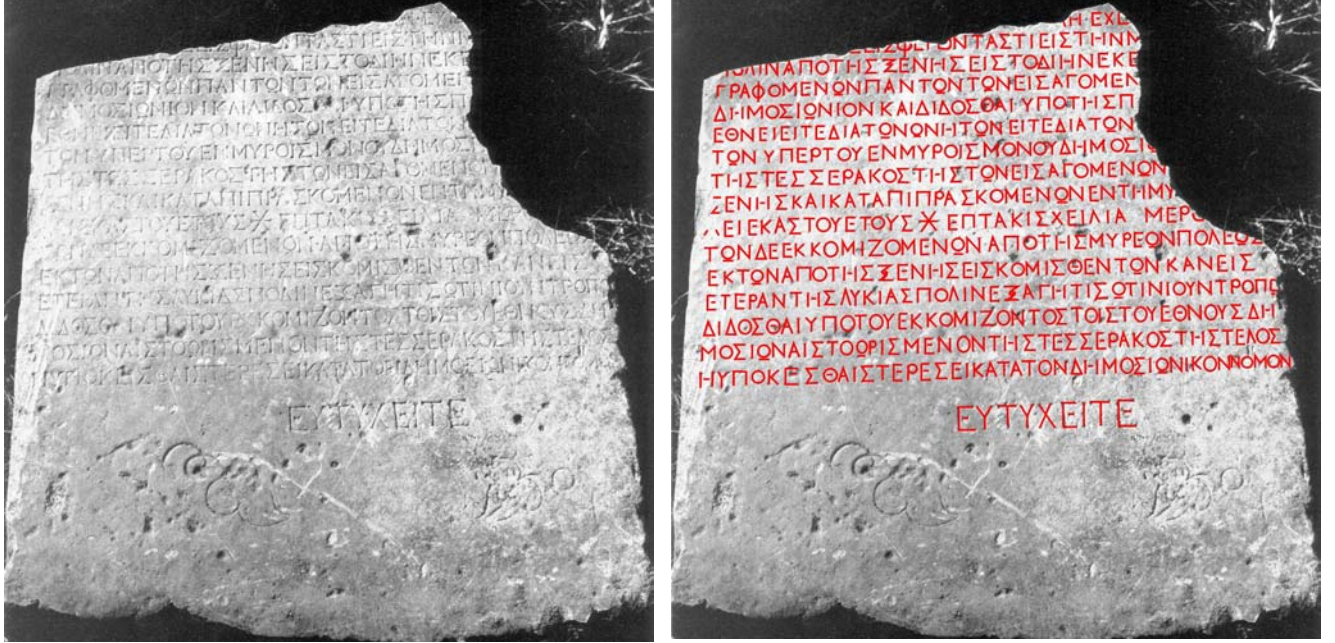 ΕΙΣΦΕΡΟΝΤΑΣΤΙΕΙΣΤΗΝΜ
ΠΟΛΙΝΑΠΟΤΗΣΞΕΝΗΣΕΙΣΤΟΔΙΗΝΕΚΕ
ΓΡΑΦΟΜΕΝΩΝΠΑΝΤΩΝΤΩΝΕΙΣΑΓΟΜΕΝ
ΔΗΜΟΣΙΩΝΙΟΝΚΑΙΔΙΔΟΣΘΑΙΥΠΟΤΗΣΠ
ΕΘΝΕΙΕΙΤΕΔΙΑΤΩΝΩΝΗΤΩΝΕΙΤΕΔΙΑΤΩΝ
ΤΩΝΥΠΕΡΤΟΥΕΝΜΥΡΟΙΣΜΟΝΟΥΔΗΜΟΣΙΩ
ΤΗΣΤΕΣΣΕΡΑΚΟΣΤΗΣΤΩΝΕΙΣΑΓΟΜΕΝΩΝ
ΞΕΝΗΣΚΑΙΚΑΤΑΠΙΠΡΑΣΚΟΜΕΝΩΝΕΝΤΗΜΥ
ΛΕΙΕΚΑΣΤΟΥΕΤΟΥΣ Ӿ ΕΠΤΑΚΙΣΧΕΙΛΙΑ ΜΕΡΟ
ΤΩΝΔΕΕΚΚΟΜΙΖΟΜΕΝΩΝΑΠΟΤΗΣΜΥΡΕΩΝΠΟΛΕΩΣ
ΕΚΤΩΝΑΠΟΤΗΣΞΕΝΗΣΕΙΣΚΟΜΙΣΘΕΝΤΩΝ ΚΑΝΕΙΣ
ΕΤΕΡΑΝΤΗΣΛΥΚΙΑΣΠΟΛΙΝΕΞΑΓΗΤΙΣΩΤΙΝΙΟΥΝΤΡΟΠΩ
ΔΙΔΟΣΘΑΙΥΠΟΤΟΥΕΚΚΟΜΙΖΟΝΤΟΣΤΟΙΣΤΟΥΕΘΝΟΥΣΔΗ
ΜΟΣΙΩΝΑΙΣΤΟΩΡΙΣΜΕΝΟΝΤΗΣΤΕΣΣΕΡΑΚΟΣΤΗΣΤΕΛΟΣ
ΗΥΠΟΚΕΣΘΑΙΣΤΕΡΕΣΕΙΚΑΤΑΤΟΝΔΗΜΟΣΙΩΝΙΚΟΝΝΟΜΟΝ
ΕΥΤΥΧΕΙΤΕ